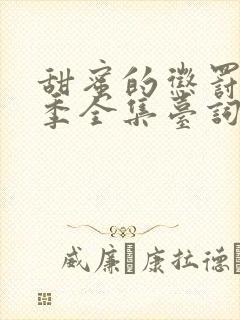 甜蜜的懲罰
季全集臺詞
威廉·康拉德